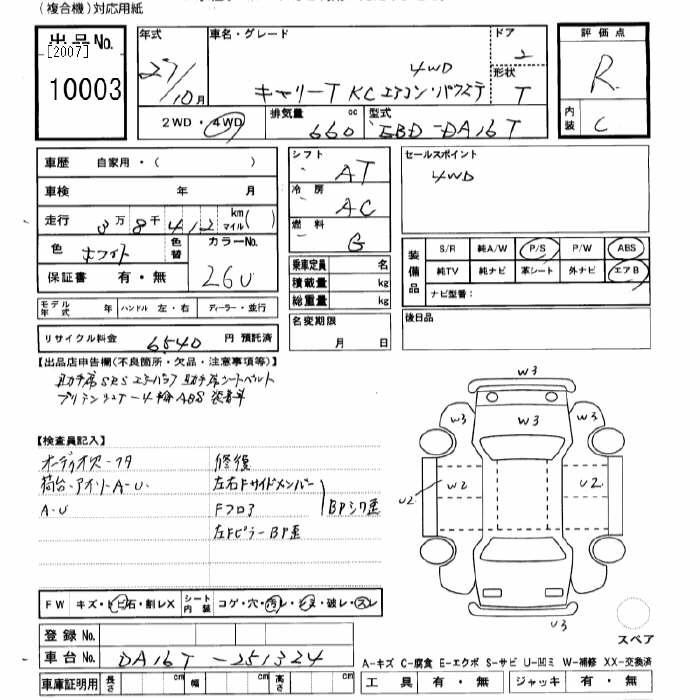 （複合機）対応用紙
出品No.
[2007]
10003
年式 車名・グレード ドア
27/10月 4WD 2
キャリーT KCエアコン・パワステ 形状 T
2WD・4WD 排気量 660 cc 型式 EBD-DA16T
評価点
R
内装 C
車歴 自家用・（ ）
車検 年 月
走行 3万8千412 km マイル( )
色 ホワイト 色替 カラーNo. 26U
保証書 有・無
モデル年式 年 ハンドル 左・右 ディーラー・並行
リサイクル料金 6540 円 預託済
シフト AT
冷房 AC
燃料 G
乗車定員 名
積載量 kg
総重量 kg
名変期限 月 日
セールスポイント
4WD
装備品 S/R 純A/W P/S P/W ABS
純TV 純ナビ 革シート 外ナビ エアB
ナビ型番：
後日品
【出品店申告欄(不良箇所・欠品・注意事項等)】
助手席SRSエアバッグ 助手席シートベルト
プリテンショナー 4輪ABS 装着車
【検査員記入】
オーディオスーフタ 修復
荷台、アオリーA-U. 左右Fサイドメンバー
A-U Fフロア BPシワ歪
左FピラーBP歪
FW キズ・トビ石・割レX シート内装 コゲ・穴・汚レ・シミ・破レ・スレ
登録No.
車台No. DA16T-251324
車庫証明用 長さ cm 幅 cm 高さ cm
W3
W3 W3 W3
U2 W2 U2
U3
スペア
A-キズ C-腐食 E-エクボ S-サビ U-凹ミ W-補修 XX-交換済
工具 有・無 ジャッキ 有・無